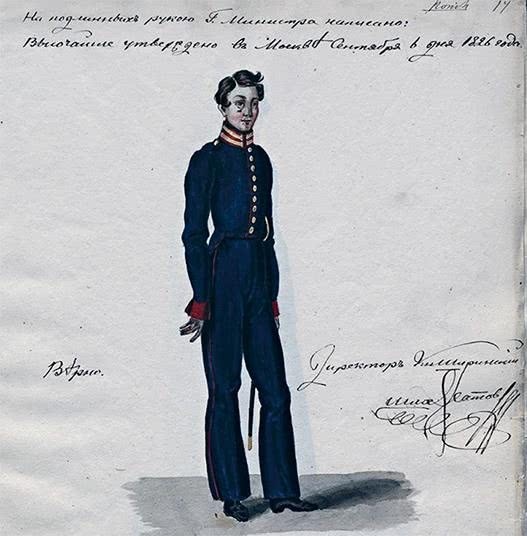 Копія 17
На подлинныхъ рукою Г. Министра написано:
Высочайше утверждено въ Москвѣ Сентября 6 дня 1826 года
Вѣрно.
Директоръ Кн. Ширинскій
Шихматовъ